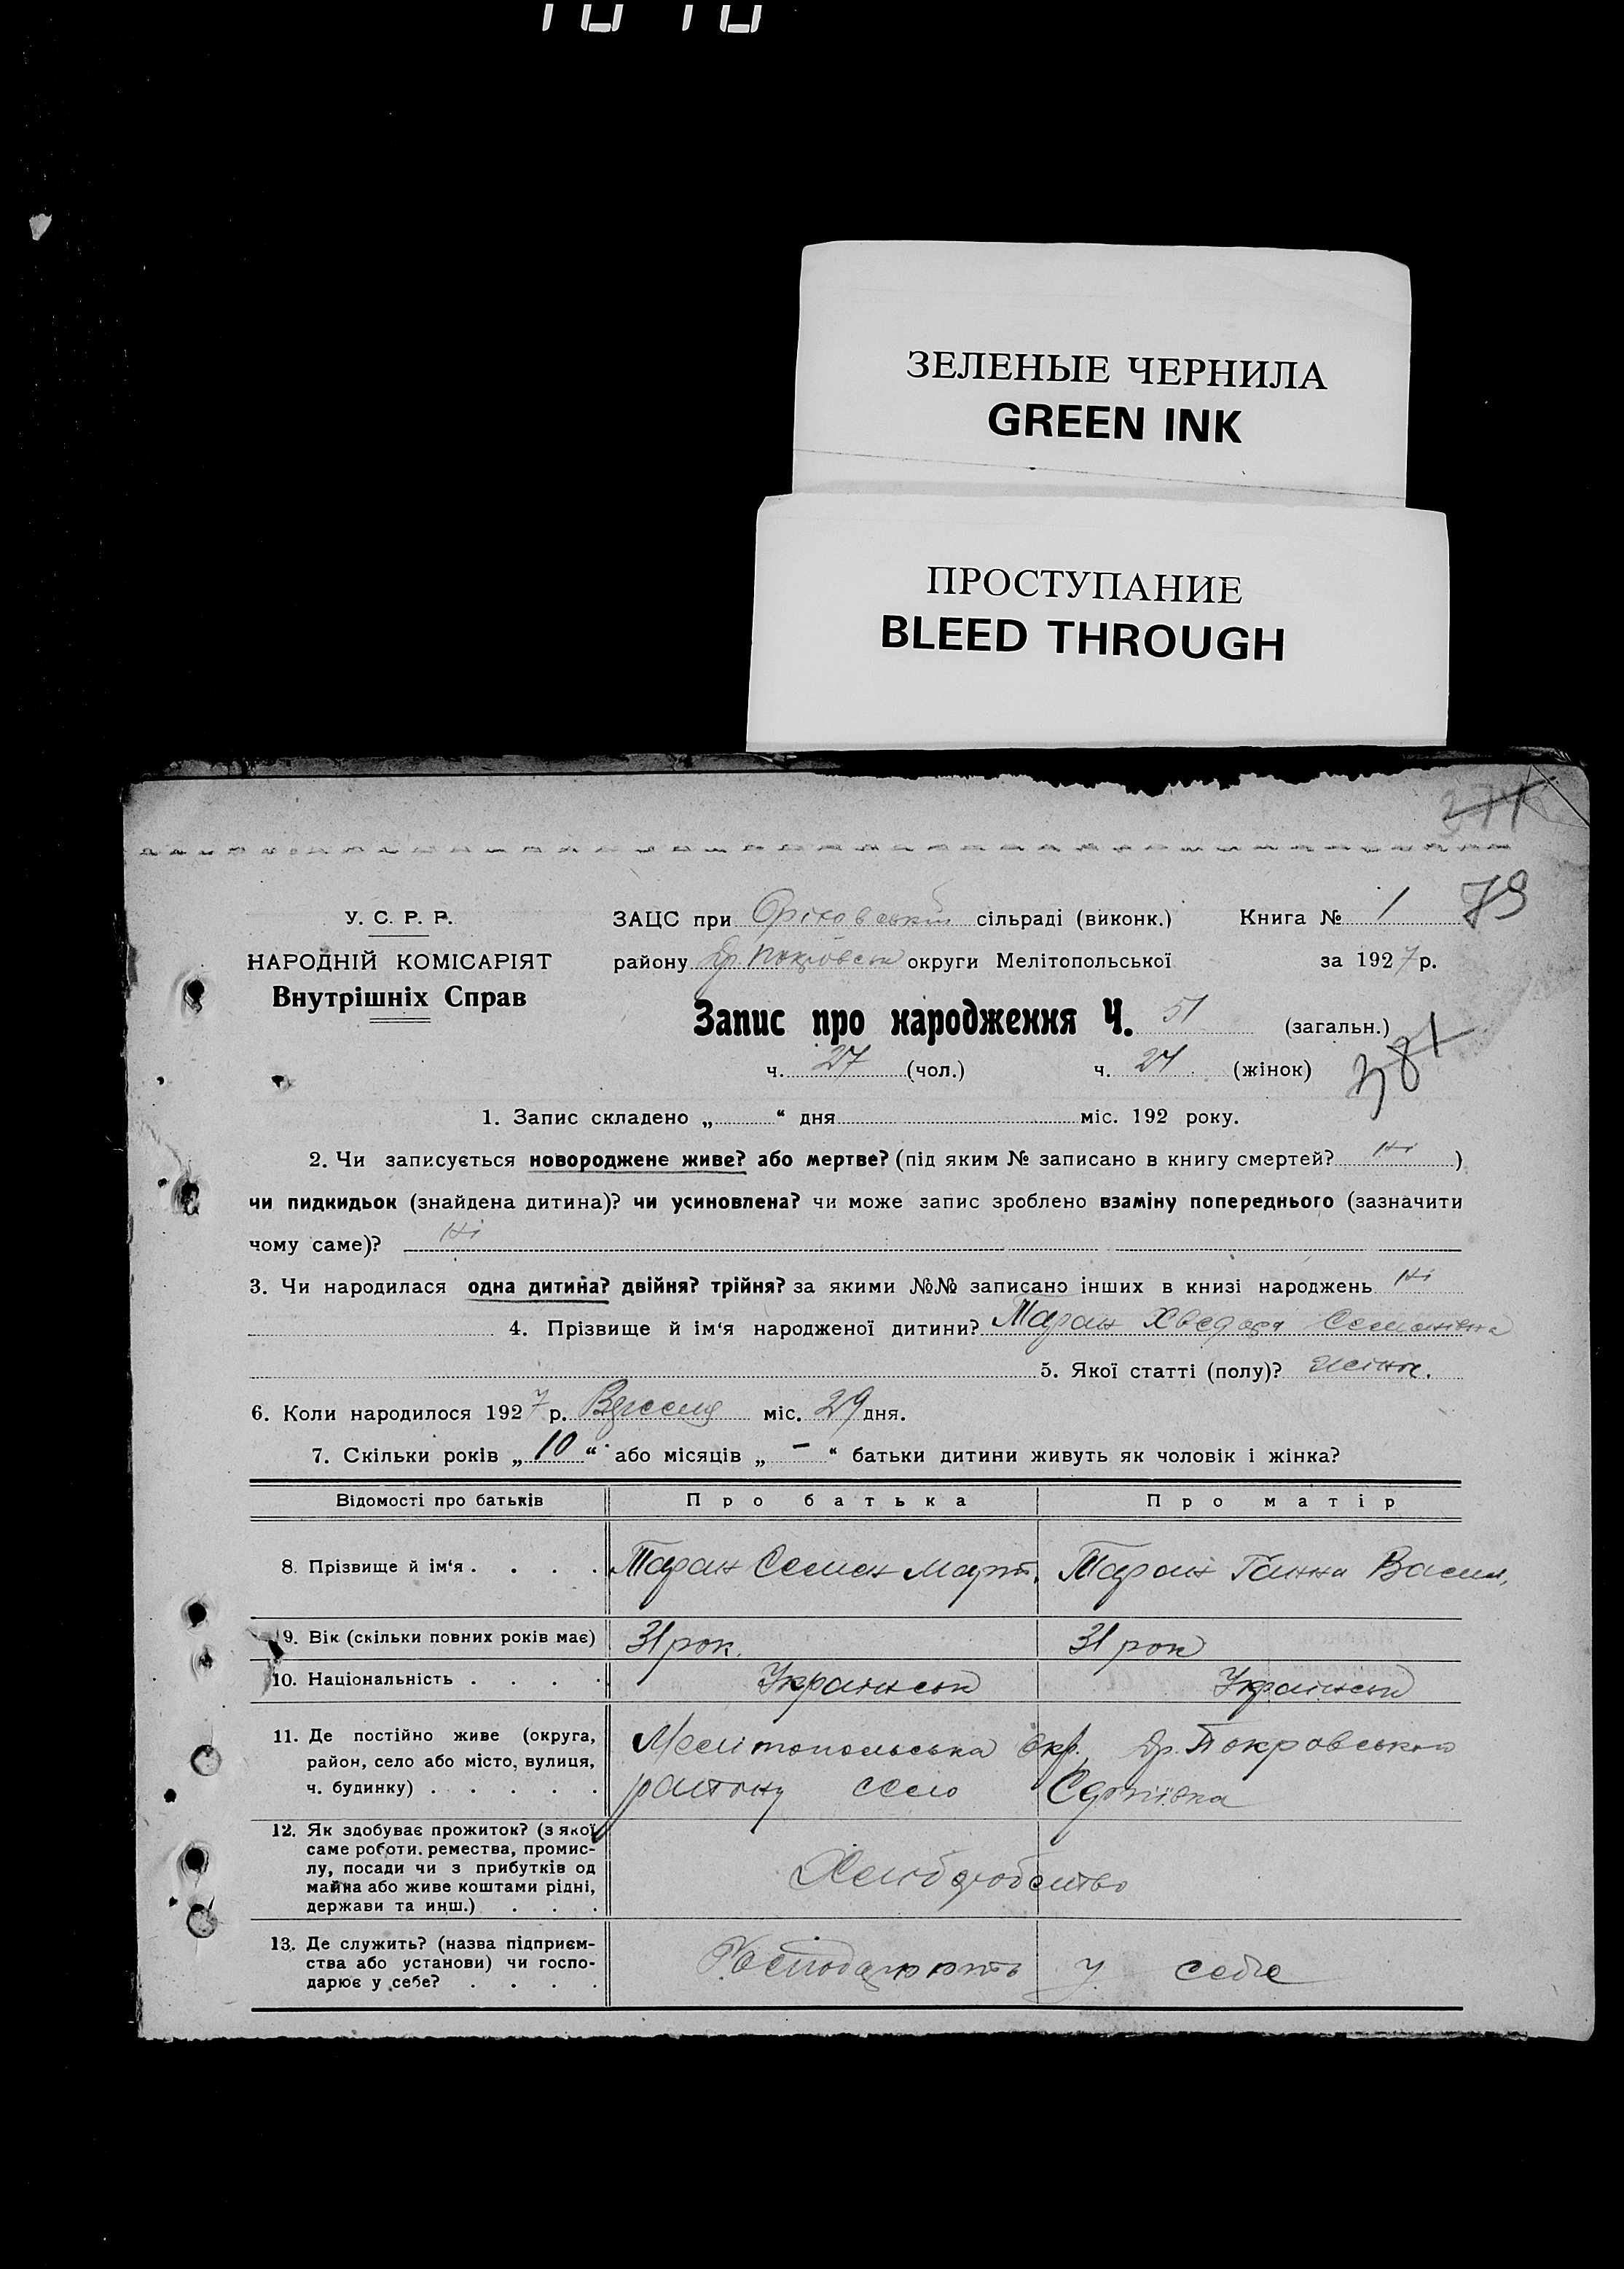 ЗЕЛЕНЫЕ ЧЕРНИЛА
GREEN INK
ПРОСТУПАНИЕ
BLEED THROUGH
374
79
У. С. Р. Р.
НАРОДНІЙ КОМІСАРІЯТ
Внутрішніх Справ
ЗАЦС при сільраді (виконк.) Книга № 1
району округи Мелітопольської за 1927 р.
Запис про народження Ч. 51 (загальн.)
ч. 27 (чол.) ч. 24 (жінок)
381
1. Запис складено „ “ дня міс. 192 року.
2. Чи записується новороджене живе? або мертве? (під яким № записано в книгу смертей? Ні )
чи пидкидьок (знайдена дитина)? чи усиновлена? чи може запис зроблено взаміну попереднього (зазначити
чому саме)? Ні
3. Чи народилася одна дитина? двійня? трійня? за якими №№ записано інших в книзі народжень Ні
4. Прізвище й ім‘я народженої дитини? Таран Хведора Семенівна
5. Якої статті (полу)? жіноч.
6. Коли народилося 1927 р. Вересня міс. 29 дня.
7. Скільки років „ 10 “ або місяців „ – “ батьки дитини живуть як чоловік і жінка?
Відомості про батьків Про батька Про матір
8. Прізвище й ім‘я . . . . Таран Семен Март. Таран Ганна Васил.
9. Вік (скільки повних років має) 31 рок. 31 рок
10. Національність . . . . Українськ Українськ
11. Де постійно живе (округа, район, село або місто, вулиця, ч. будинку) . . . . .
Мелітопольська окр. Вр. Покровського
району село Сергіївка
12. Як здобуває прожиток? (з якої саме роботи, ремества, промислу, посади чи з прибутків од майна або живе коштами рідні, держави та инш.) . . .
Хлібробство
13. Де служить? (назва підприємства або установи) чи господарює у себе? . . . .
Господарюють у себе